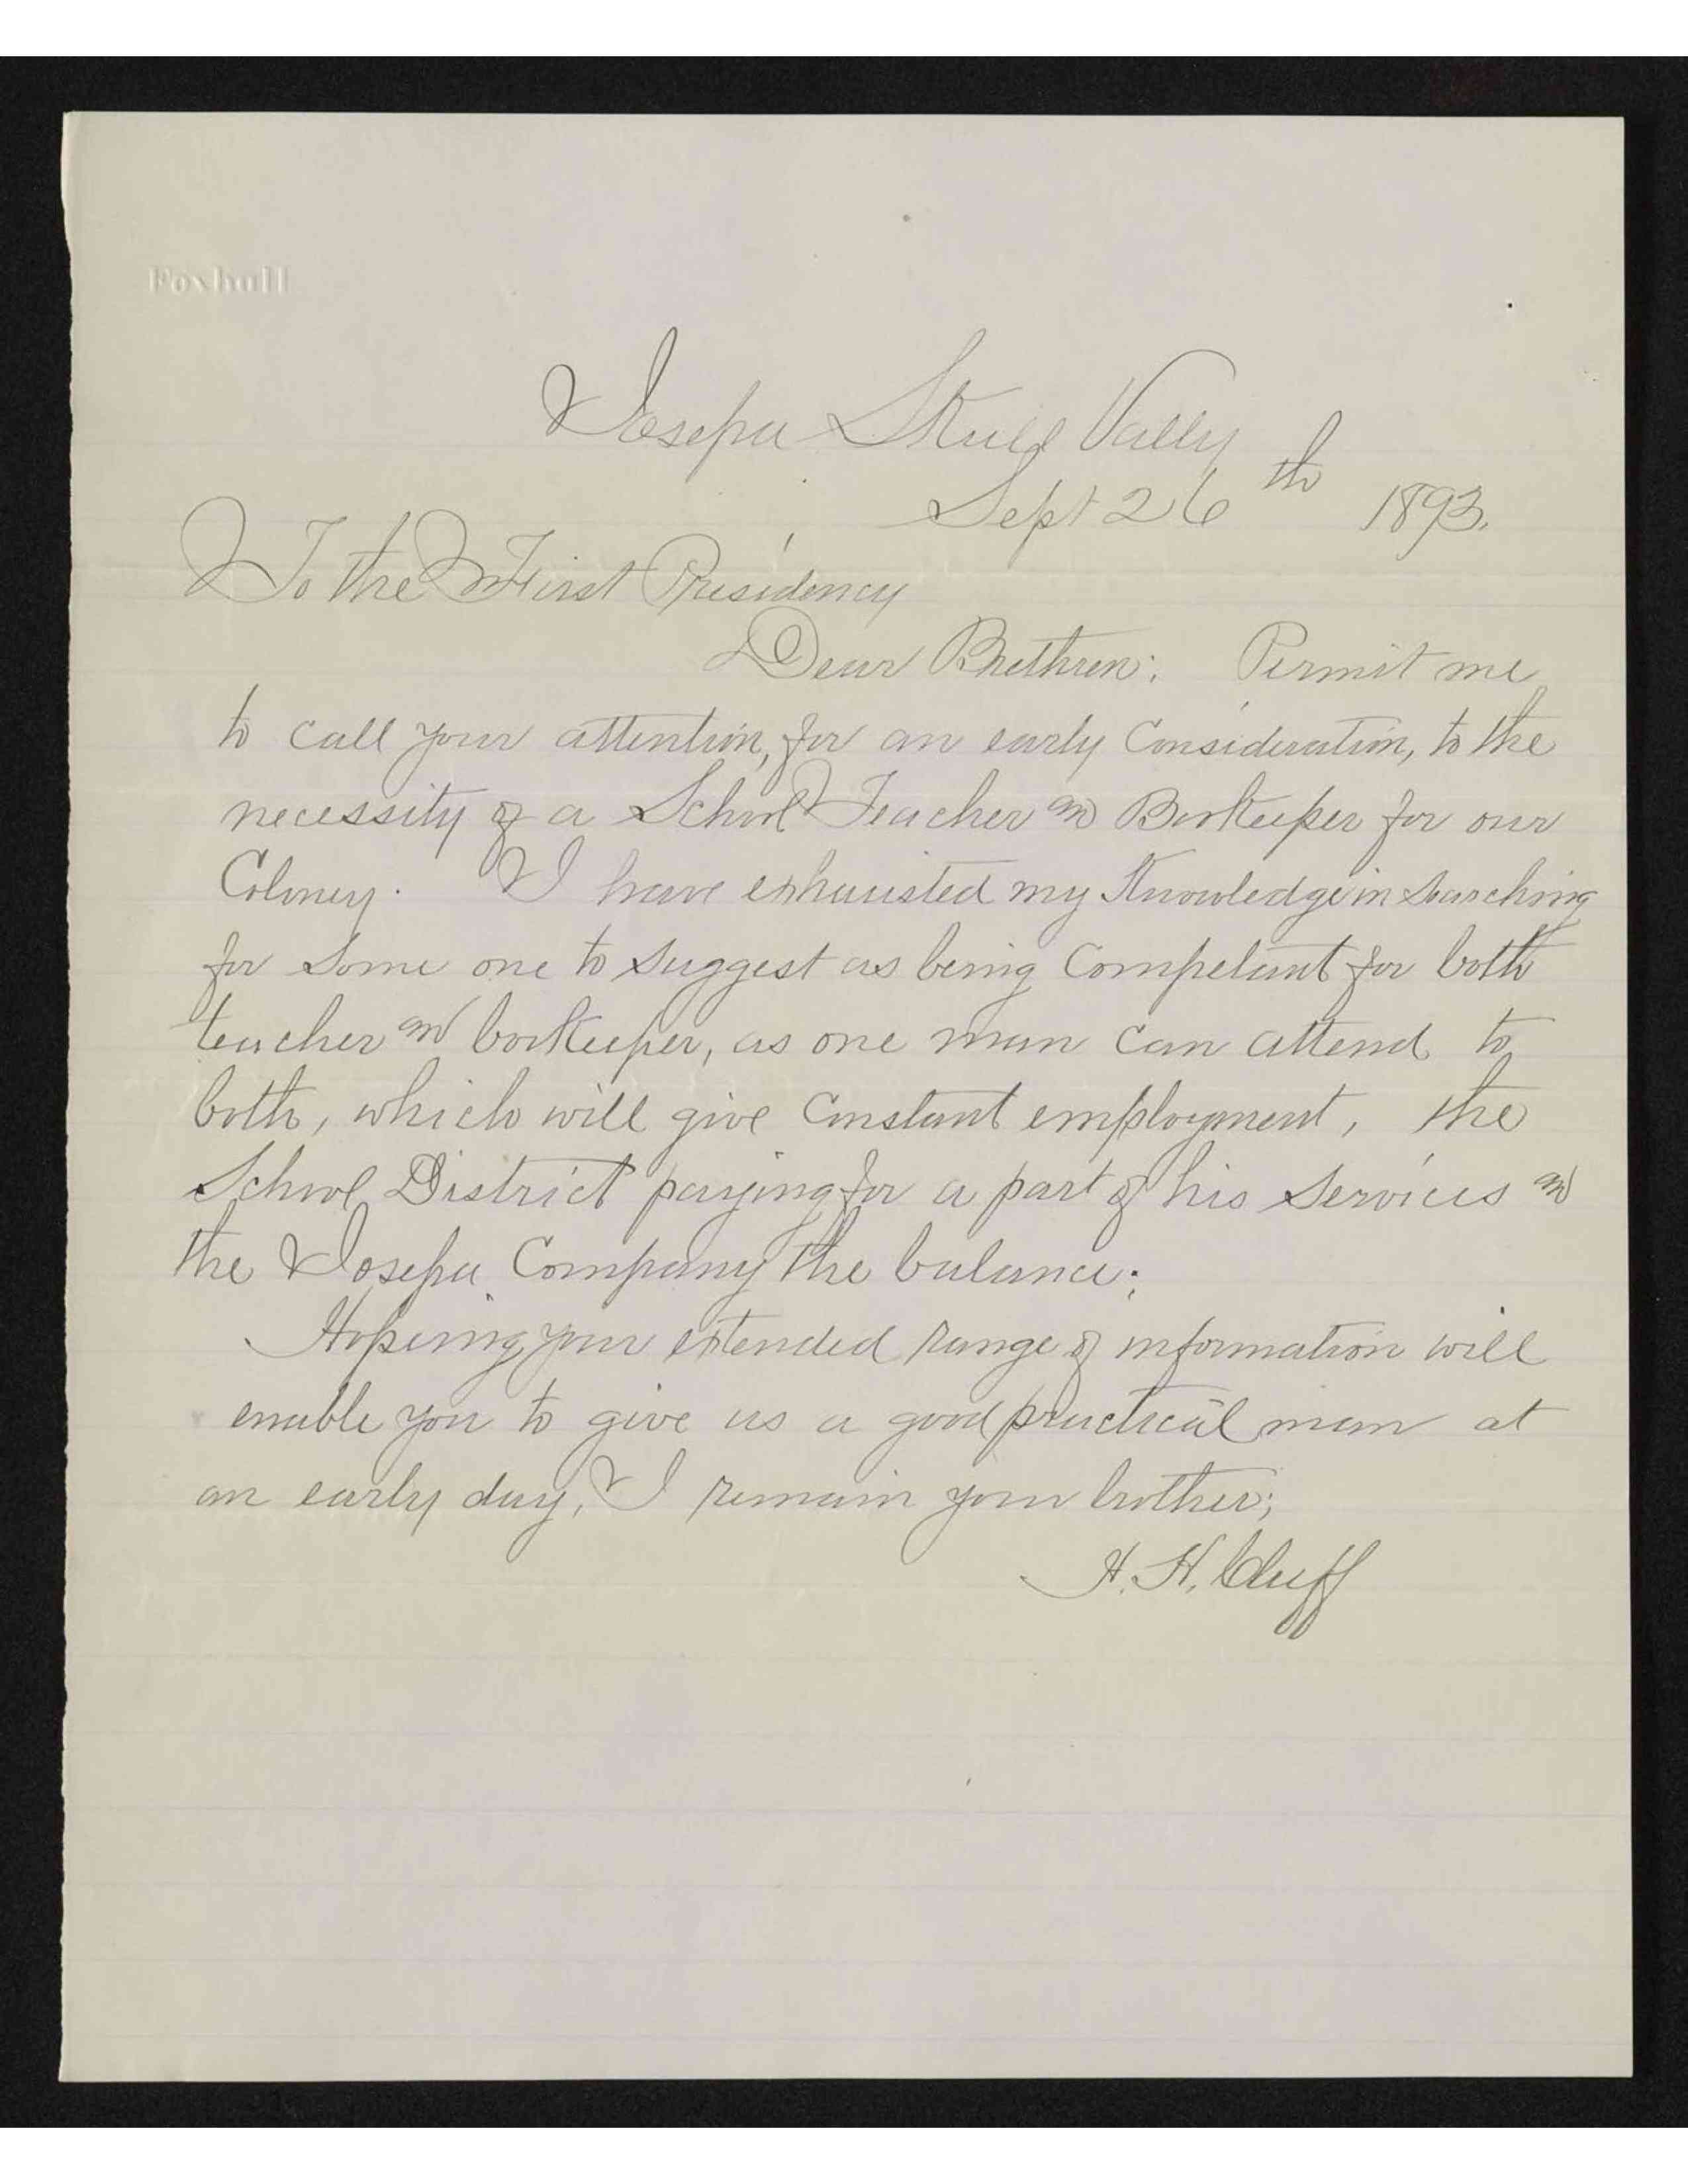 Foxhall
Iosepa Skull Vally
Sept 26th 1893.
To the First Presidency
Dear Brethren: Permit me
to call your attention, for an early Consideration, to the
necessity of a School Teacher and Bookeeper for our
Coloney. I have exhausted my Knowledge in searching
for some one to suggest as being Competant for both
teacher and bookeeper, as one man can attend to
both, which will give Constant employment, the
School District paying for a part of his services and
the Iosepa Company the balance;
Hopeing your extended range of information will
enable you to give us a good practical man at
an early day, I remain your brother;
H. H. Cluff